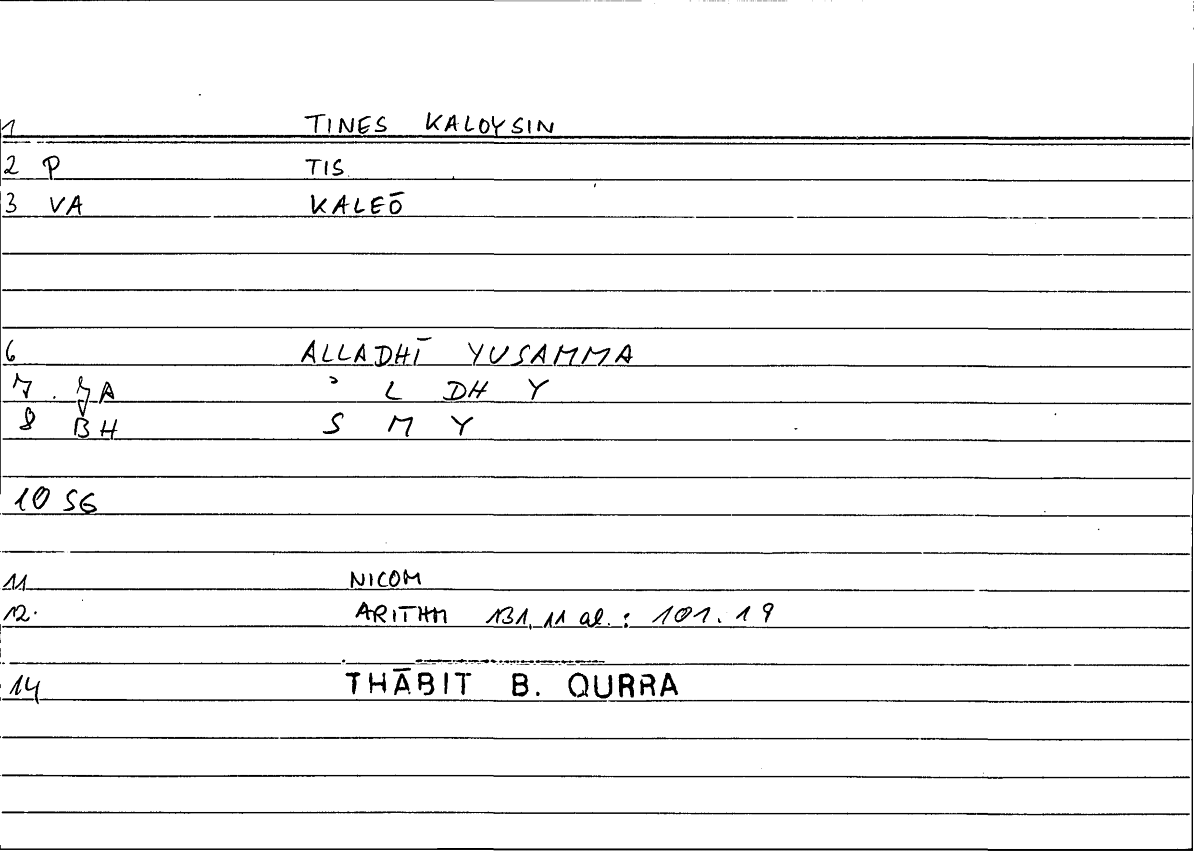 1 TINES KALOYSIN
2 P TIS
3 VA KALEŌ
6 ALLADHĪ YUSAMMA
7. A ʾ L DH Y
8 BH S M Y
10 SG
11 NICOM
12. ARITHM 131,11 al.: 101.19
14 THĀBIT B. QURRA